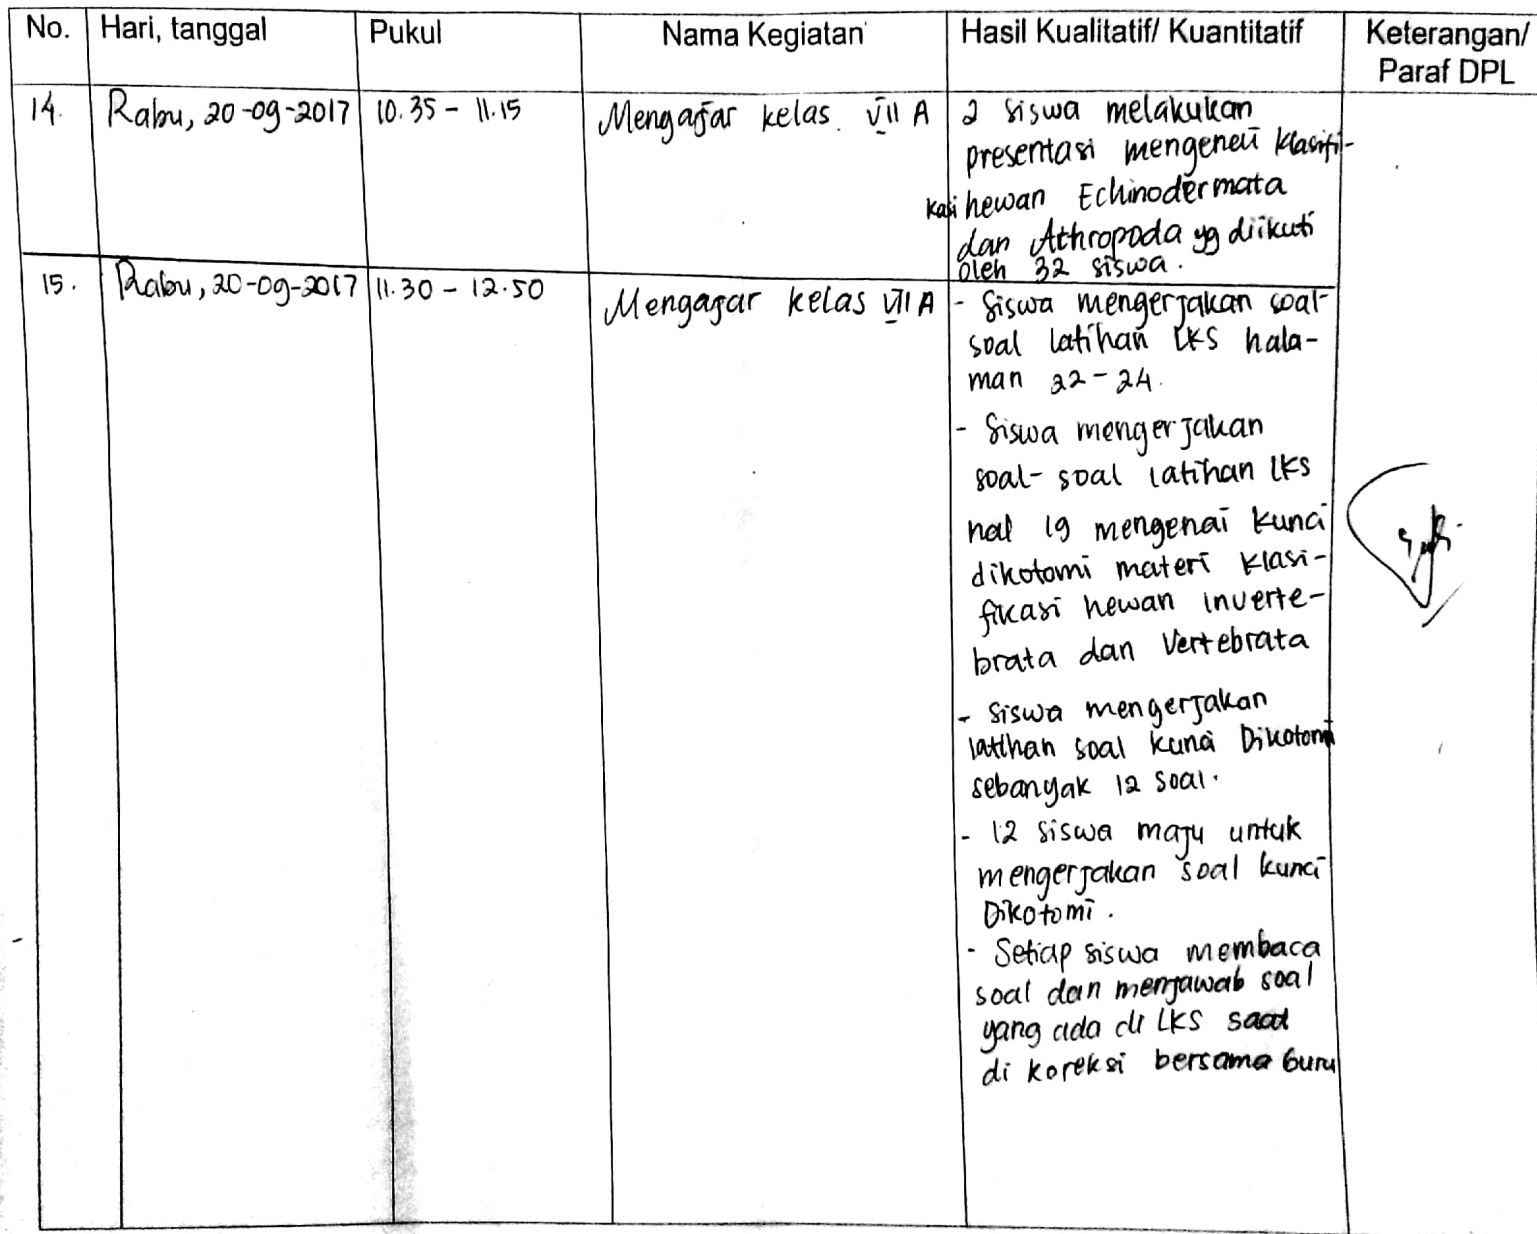 No. Hari, tanggal Pukul Nama Kegiatan Hasil Kualitatif/ Kuantitatif Keterangan/
Paraf DPL
14. Rabu, 20-09-2017 10.35 - 11.15 Mengajar kelas VII A 2 siswa melakukan
presentasi mengenai klasifi-
kasi hewan Echinodermata
dan Athropoda yg diikuti
oleh 32 siswa.
15. Rabu, 20-09-2017 11.30 - 12.50 Mengajar kelas VII A - Siswa mengerjakan soal-
soal latihan LKS hala-
man 22 - 24.
- Siswa mengerjakan
soal- soal latihan LKS
hal 19 mengenai kunci
dikotomi materi klasi-
fikasi hewan inverte-
brata dan Vertebrata
- siswa mengerjakan
latihan soal kunci Dikotomi
sebanyak 12 soal.
- 12 siswa maju untuk
mengerjakan soal kunci
Dikotomi.
- Setiap siswa membaca
soal dan menjawab soal
yang ada di LKS saat
di koreksi bersama Guru